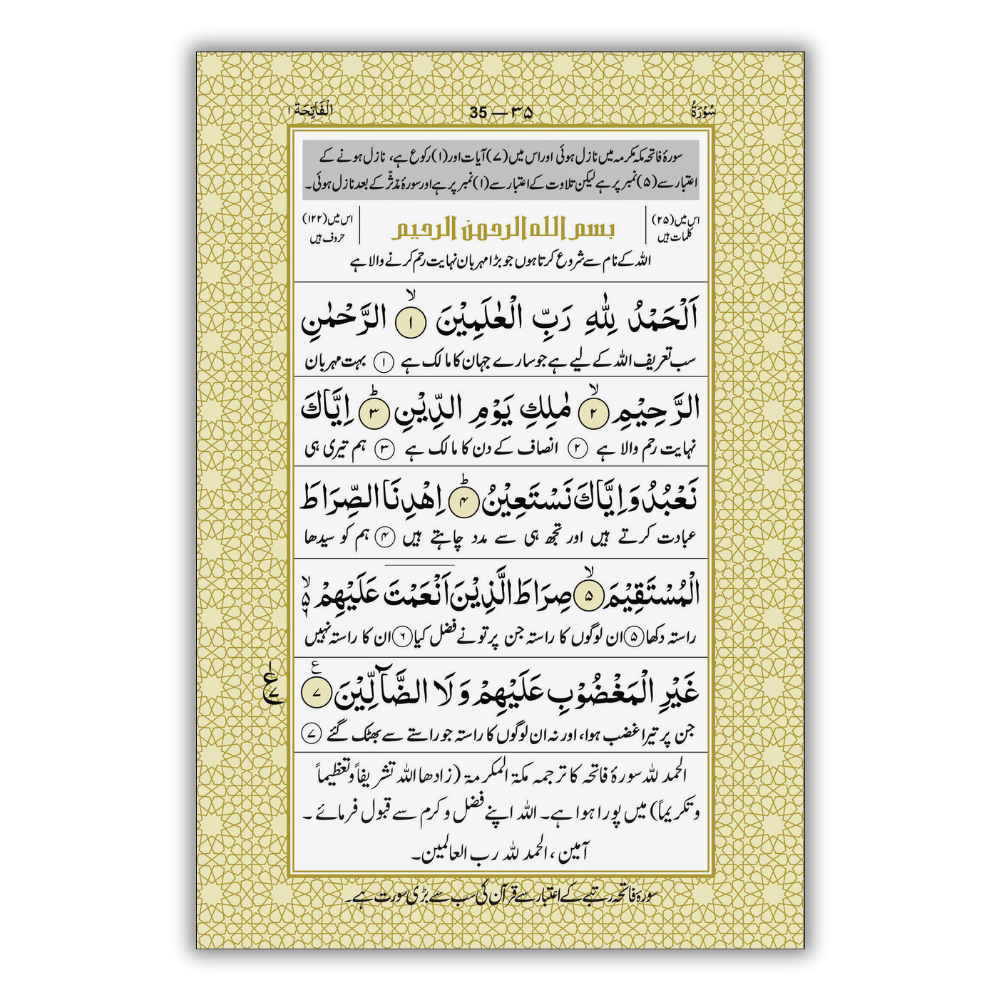 سُوْرَۃُ 35 — ۳۵ اَلْفَاتِحَة ۱
سورۂ فاتحہ مکہ مکرمہ میں نازل ہوئی اور اس میں (۷) آیات اور (۱) رکوع ہے، نازل ہونے کے
اعتبار سے (۵) نمبر پر ہے لیکن تلاوت کے اعتبار سے (۱) نمبر پر ہے اور سورۂ مدّثّر کے بعد نازل ہوئی۔
اس میں (۲۵) کلمات ہیں
بسم الله الرحمن الرحيم
اس میں (۱۲۲) حروف ہیں
اللہ کے نام سے شروع کرتا ہوں جو بڑا مہربان نہایت رحم کرنے والا ہے
اَلْحَمْدُ لِلّٰهِ رَبِّ الْعٰلَمِیْنَ ۙ ۱ الرَّحْمٰنِ
سب تعریف اللہ کے لیے ہے جو سارے جہان کا مالک ہے ۱ بہت مہربان
الرَّحِیْمِ ۙ ۲ مٰلِكِ یَوْمِ الدِّیْنِ ؕ ۳ اِیَّاكَ
نہایت رحم والا ہے ۲ انصاف کے دن کا مالک ہے ۳ ہم تیری ہی
نَعْبُدُ وَ اِیَّاكَ نَسْتَعِیْنُ ؕ ۴ اِهْدِنَا الصِّرَاطَ
عبادت کرتے ہیں اور تجھ ہی سے مدد چاہتے ہیں ۴ ہم کو سیدھا
الْمُسْتَقِیْمَ ۙ ۵ صِرَاطَ الَّذِیْنَ اَنْعَمْتَ عَلَیْهِمْ ۙ۵
راستہ دکھا ۵ ان لوگوں کا راستہ جن پر تو نے فضل کیا ۶ ان کا راستہ نہیں
غَیْرِ الْمَغْضُوْبِ عَلَیْهِمْ وَ لَا الضَّآلِّیْنَ ۷ ع
جن پر تیرا غضب ہوا، اور نہ ان لوگوں کا راستہ جو راستے سے بھٹک گئے ۷
الحمد للہ سورۂ فاتحہ کا ترجمہ مکۃ المکرمۃ (زادھا اللہ تشریفاً وتعظیماً
وتکریماً) میں پورا ہوا ہے۔ اللہ اپنے فضل و کرم سے قبول فرمائے۔
آمین، الحمد للہ رب العالمین۔
سورۂ فاتحہ رتبے کے اعتبار سے قرآن کی سب سے بڑی سورت ہے۔